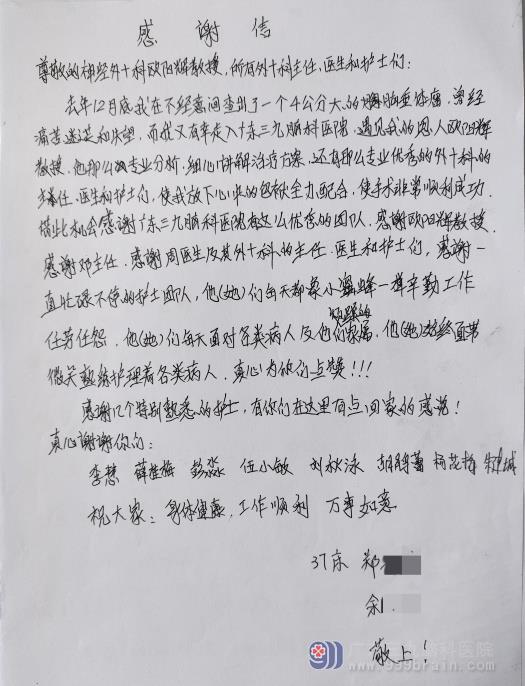 感谢信
尊敬的神经外十科欧阳辉教授，所有外十科主任、医生和护士们：
去年12月底我在不经意间查出了一个4公分大的脑垂体瘤，曾经
痛苦迷茫和失望，而我又有幸走入广东三九脑科医院，遇见我的恩人欧阳辉
教授，他那么专业分析，细心讲解治疗方案，还有那么专业优秀的外十科的
主任、医生和护士们，使我放下心来的包袱全力配合，使手术非常顺利成功。
借此机会感谢广东三九脑科医院有这么优秀的团队，感谢欧阳辉教授，
感谢邓主任，感谢周医生及其外十科的主任、医生和护士们，感谢一
直忙碌不停的护士团队，他(她)们每天都象小蜜蜂一样辛勤工作
任劳任怨，他(她)们每天面对各类病人及他们烦躁的家属，他(她)始终面带
微笑熟练护理着各类病人，真心为你们点赞!!!
感谢几个特别熟悉的护士，有你们在这里有点回家的感觉！
真心谢谢你们：
李慧 薛桂梅 彭淼 伍小敏 刘秋泳 柯花梅
祝大家：身体健康，工作顺利 万事如意
37床 郑
余
敬上！
广东三九脑科医院
www.999brain.com